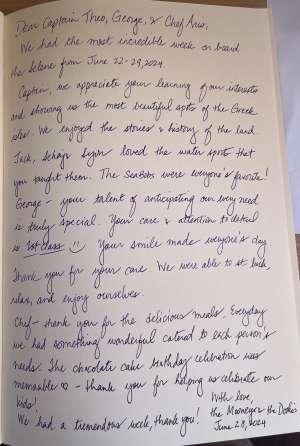 Dear Captain Theo, George, & Chef Aris,
We had the most incredible week on board
the Selene from June 22-29, 2024.
Captain, we appreciate your learning of our interests
and showing us the most beautiful spots of the Greek
isles. We enjoyed the stories & history of the land.
Jack, & loved the water sports that
you taught them. The SeaBobs were everyone's favorite!
George - your talent of anticipating our every need
is truly special. Your care & attention to detail
is 1st class Your smile made everyone's day
Thank you for your care. We were able to sit back,
relax, and enjoy ourselves.
Chef - thank you for the delicious meals. Everyday
we had something wonderful catered to each person's
needs. The chocolate cake birthday celebration was
memorable - thank you for helping us celebrate our
kids!
We had a tremendous week, thank you!
With love,
the & the
June 28, 2024